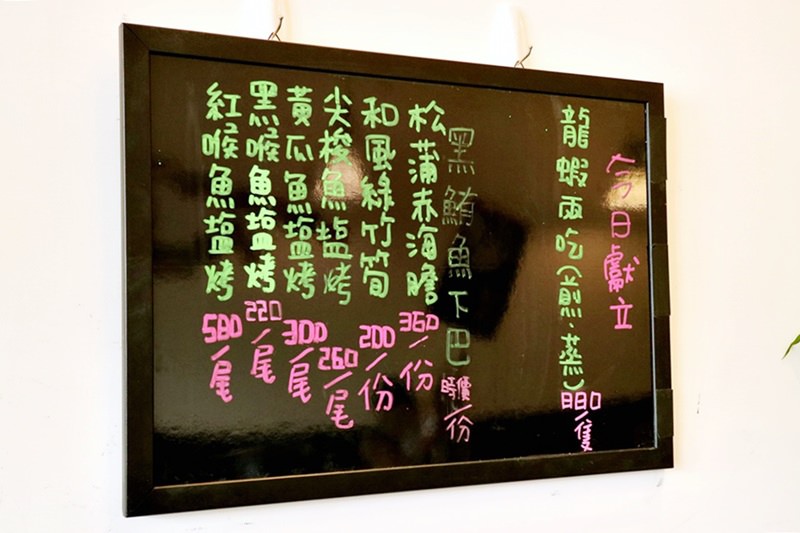 今日獻立
龍蝦兩吃(煎.蒸) 880/隻
黑鮪魚下巴 時價/份
松蒲赤海膽 360/份
和風綠竹筍 200/份
尖梭魚塩烤 260/尾
黃瓜魚塩烤 300/尾
黑喉魚塩烤 220/尾
紅喉魚塩烤 580/尾